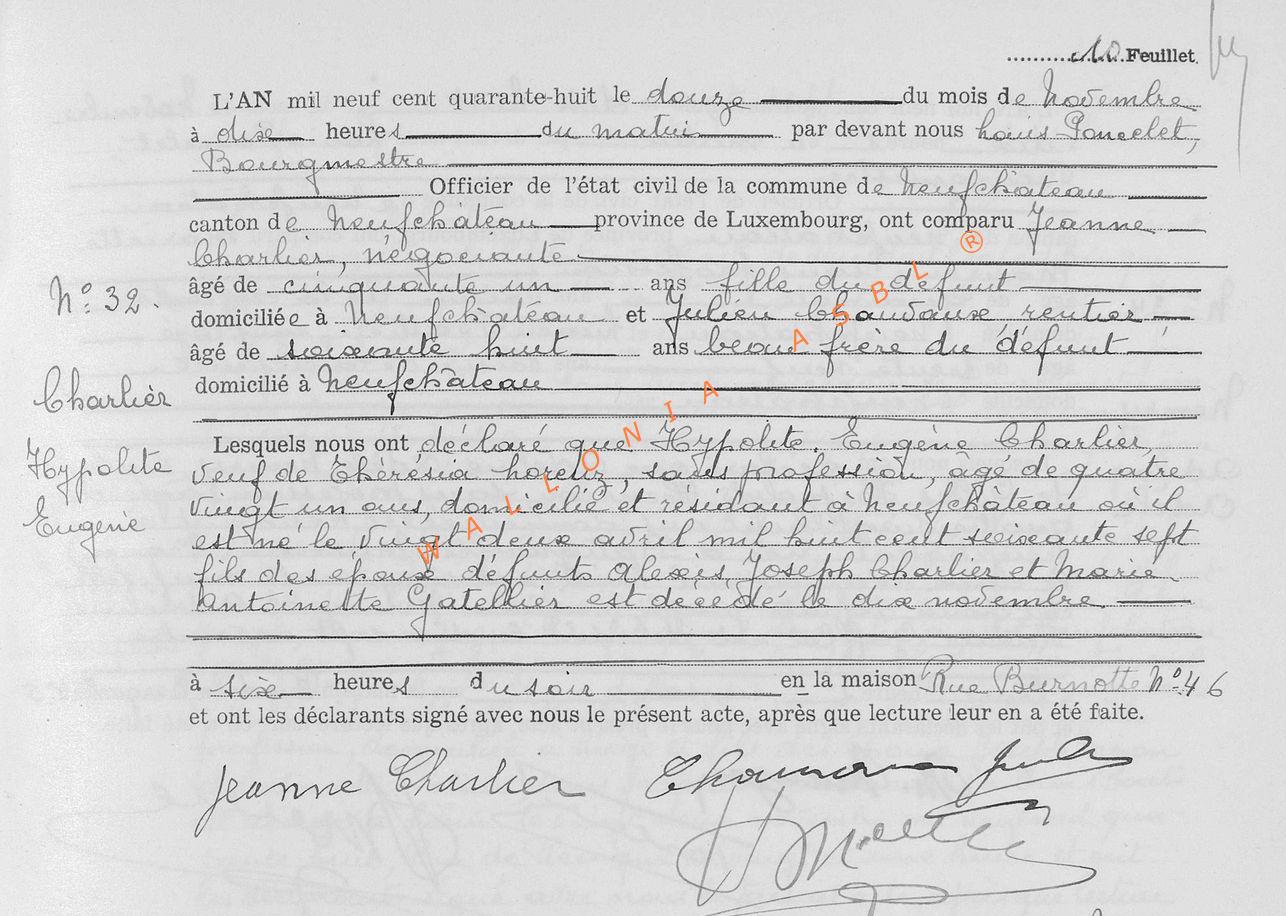 10 Feuillet
L'AN mil neuf cent quarante-huit le douze du mois de Novembre
à dix heures du matin par devant nous Louis Poncelet,
Bourgmestre
Officier de l'état civil de la commune de Neufchâteau
canton de Neufchâteau province de Luxembourg, ont comparu Jeanne
Charlier, négociante
N° 32.
âgé de cinquante un ans fille du défunt
domiciliée à Neufchâteau et Julien Chauvaux rentier
âgé de soixante huit ans beau frère du défunt
domicilié à Neufchâteau
Charlier
Hypolite
Eugène
Lesquels nous ont déclaré que Hypolite, Eugène Charlier,
veuf de Thérésia, sans profession, âgé de quatre
vingt un ans, domicilié et résidant à Neufchâteau où il
est né le vingt deux avril mil huit cent soixante sept
fils des epoux défunts Alexis Joseph Charlier et Marie
Antoinette Gatellier est décédé le dix novembre
à six heures du soir en la maison Rue Burnotte N° 46
et ont les déclarants signé avec nous le présent acte, après que lecture leur en a été faite.
Jeanne Charlier
WALLONIA ASBL ®